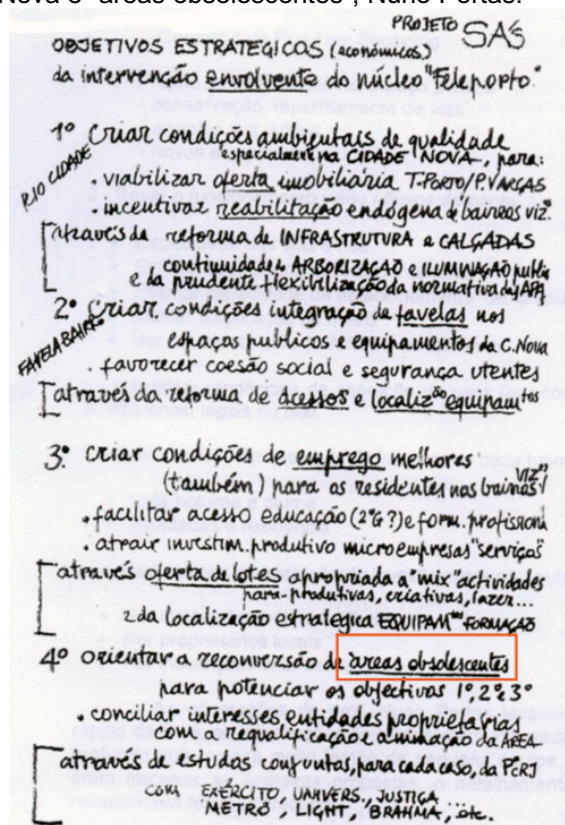 Nova e "áreas obsolescentes", Nuno Portas.
PROJETO SAS
OBJETIVOS ESTRATÉGICOS (económicos)
da intervenção envolvente do núcleo "Teleporto"
1º Criar condições ambientais de qualidade
especialmente na CIDADE NOVA, para:
RIO CIDADE
. viabilizar oferta imobiliária T.PORTO/P.VARGAS
. incentivar reabilitação endógena de bairros viz.
através da reforma de INFRASTRUTURA e CALÇADAS
continuidade ARBORIZAÇÃO e ILUMINAÇÃO públic
e da prudente flexibilização da normativa
2º Criar condições integração de favelas nos
FAVELA BAIRRO
espaços publicos e equipamentos da C. Nova
. favorecer coesão social e segurança utentes
através da reforma de acessos e localizção equipamtos
3º criar condições de emprego melhores
(também) para os residentes nos bairros viz.os
. facilitar acesso educação (2ºG?) e form. profissionl
. atrair investim. produtivo microempresas "serviços"
através oferta de lotes apropriada a "mix" actividades
para-produtivas, criativas, lazer...
e da localização estrategica EQUIPAMtos FORMAÇÃO
4º orientar a reconversão de áreas obsolescentes
para potenciar os objectivos 1º, 2º e 3º
. conciliar interesses entidades proprietárias
com a requalificação e animação da ÁREA
através de estudos conjuntos, para cada caso, da PCRJ
com EXÉRCITO, UNIVERS., JUSTIÇA ...
METRO, LIGHT, BRAHMA, etc.